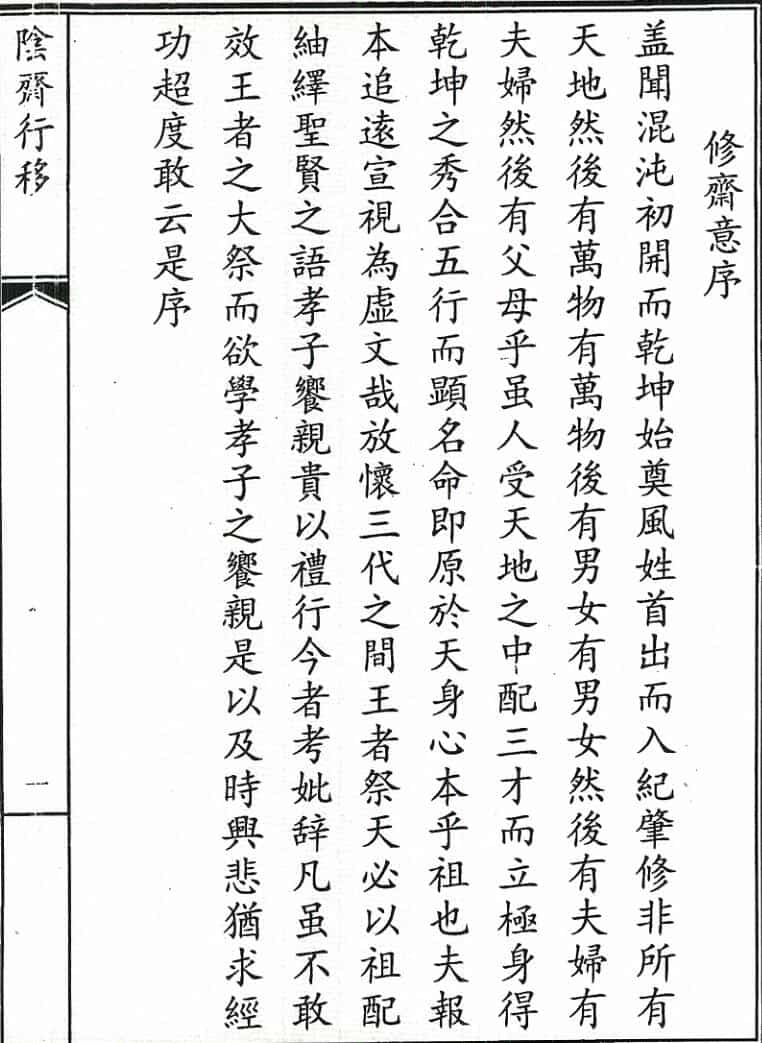 修齋意序
盖聞混沌初開而乾坤始奠風姓首出而入紀肇修非所有
天地然後有萬物有萬物後有男女有男女然後有夫婦有
夫婦然後有父母乎虽人受天地之中配三才而立極身得
乾坤之秀合五行而顕名命即原於天身心本乎祖也夫報
本追遠宣視為虛文哉放懷三代之間王者祭天必以祖配
紬繹聖賢之語孝子饗親貴以禮行今者考妣辞凡虽不敢
效王者之大祭而欲學孝子之饗親是以及時興悲猶求經
功超度敢云是序
陰齋行移
一